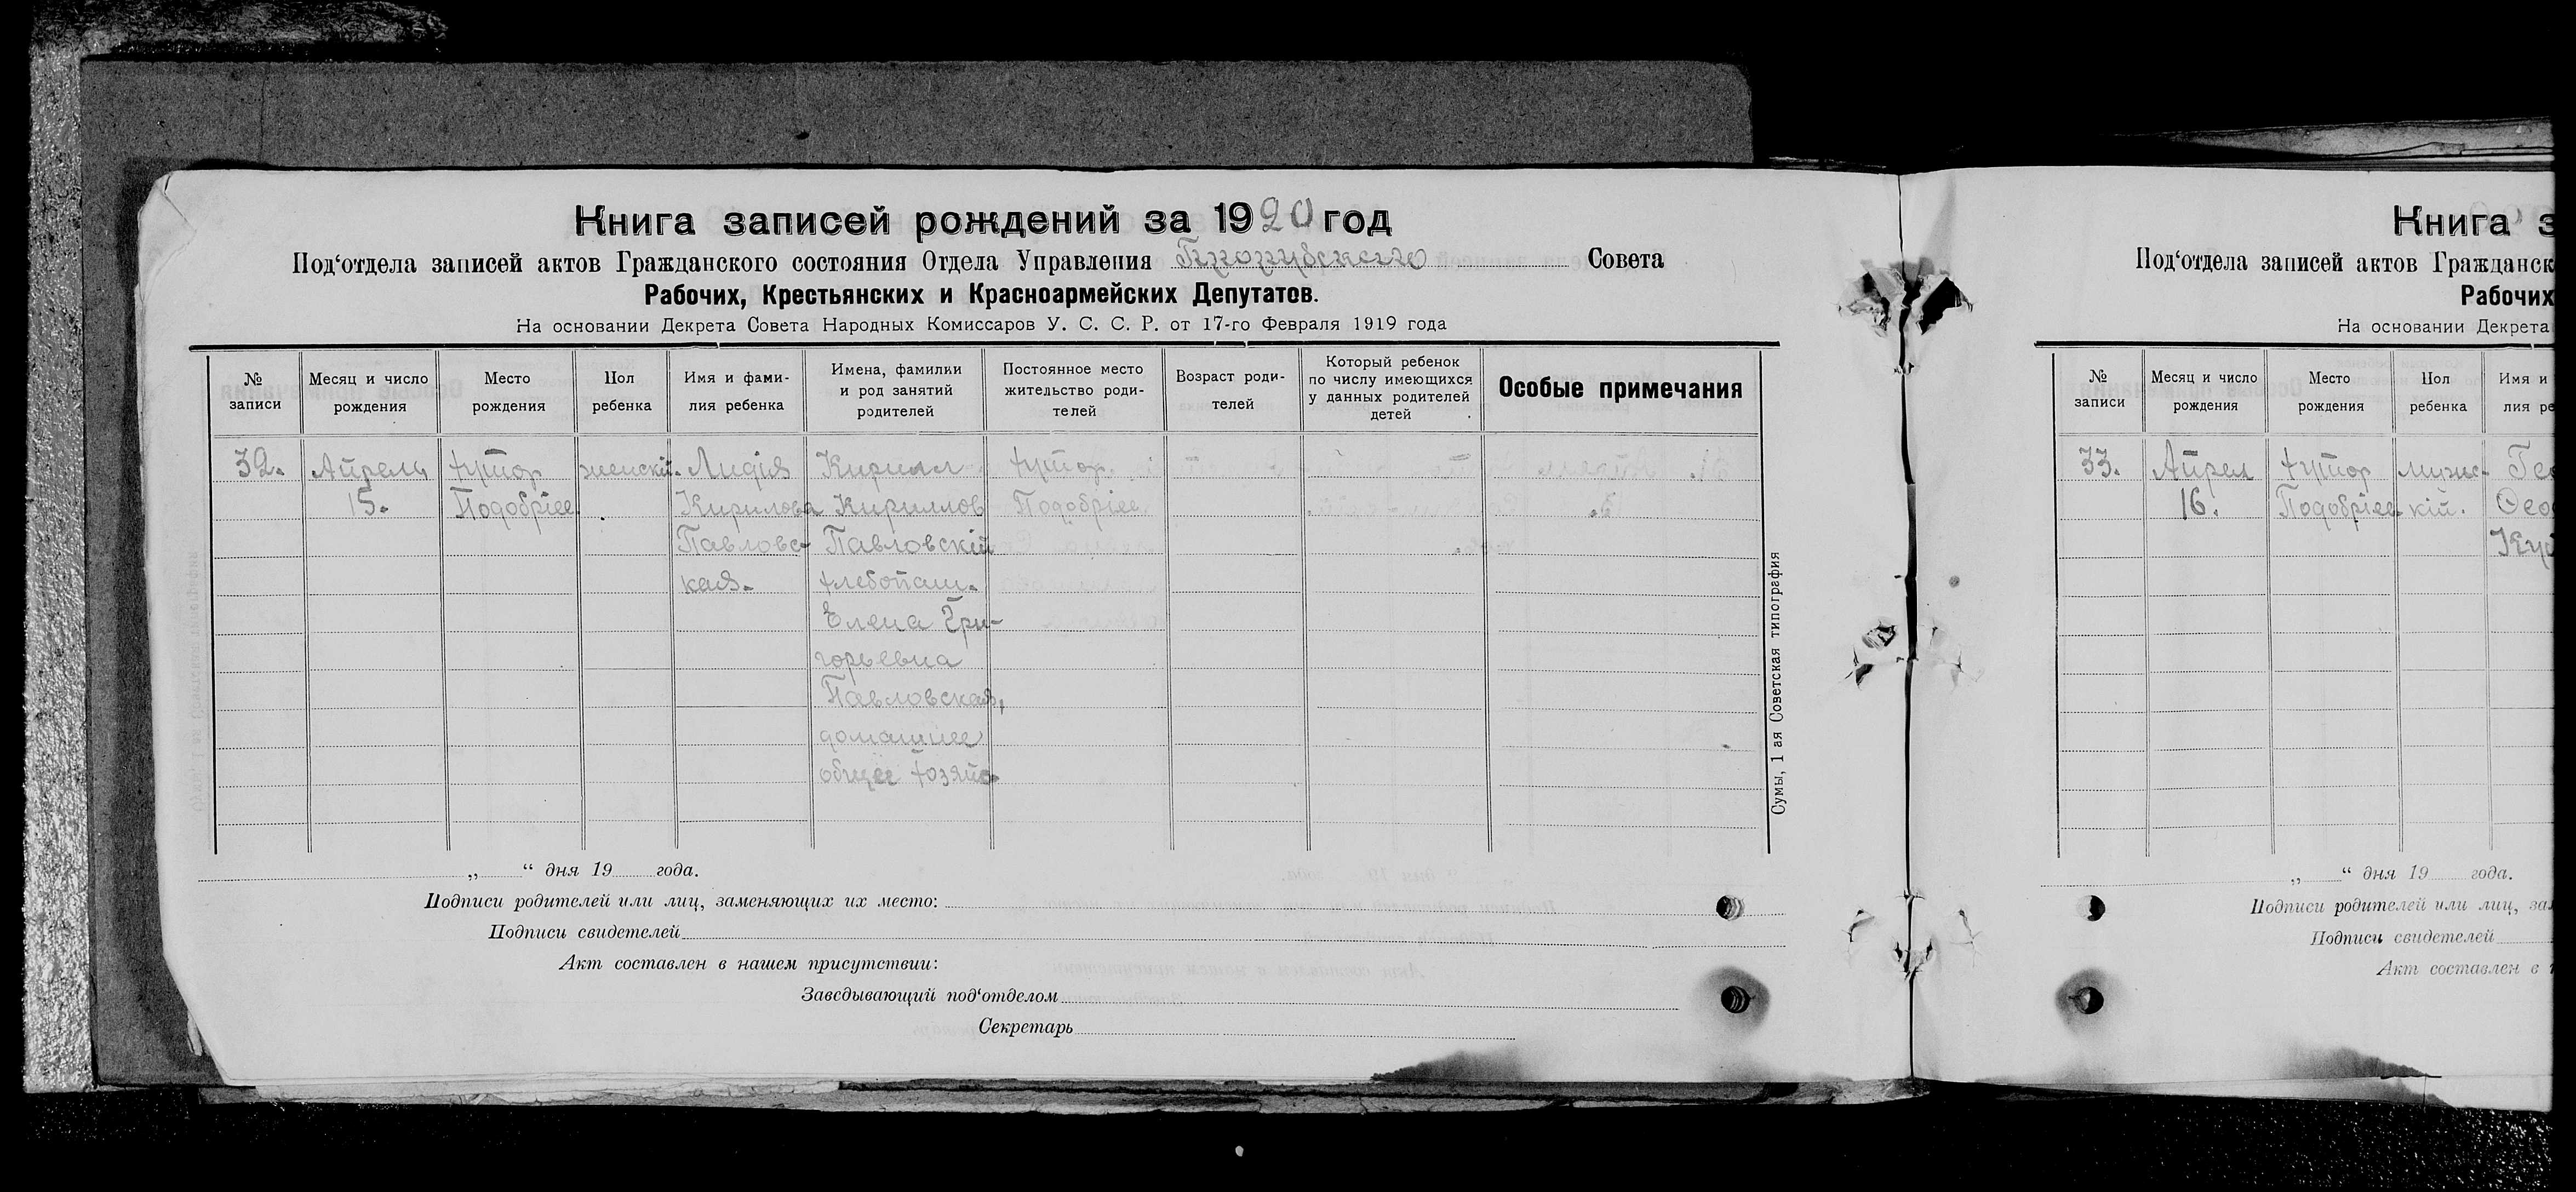 Книга записей рождений за 1920 год
Под‘отдела записей актов Гражданского состояния Отдела Управления Совета
Рабочих, Крестьянских и Красноармейских Депутатов.
На основании Декрета Совета Народных Комиссаров У. С. С. Р. от 17-го Февраля 1919 года
№ записи
Месяц и число рождения
Место рождения
Пол ребенка
Имя и фами-
лия ребенка
Имена, фамилии
и род занятий
родителей
Постоянное место
жительство роди-
телей
Возраст роди-
телей
Который ребенок
по числу имеющихся
у данных родителей
детей
Особые примечания
32.
Апрель
15.
хутор
Подобріее
женскій.
Лидія
Кирилова
Павловс-
кая.
Кирилл
Кириллов
Павловскій
хлебопаш.
Елена Гри-
горьевна
Павловская,
домашнее
общее хозяйс-
хутор
Подобріее
Сумы, 1 ая Советская типография
„ “ дня 19 года.
Подписи родителей или лиц, заменяющих их место:
Подписи свидетелей
Акт составлен в нашем присутствии:
Заведывающий под‘отделом
Секретарь
Книга з
Под‘отдела записей актов Гражданск
Рабочих
На основании Декрета
№ записи
Месяц и число рождения
Место рождения
Пол ребенка
Имя и
лия ре
33.
Апрел
16.
хутор
Подобріее
мужс-
кій.
Гео
Фео
„ “ дня 19 года.
Подписи родителей или лиц, зам
Подписи свидетелей
Акт составлен в